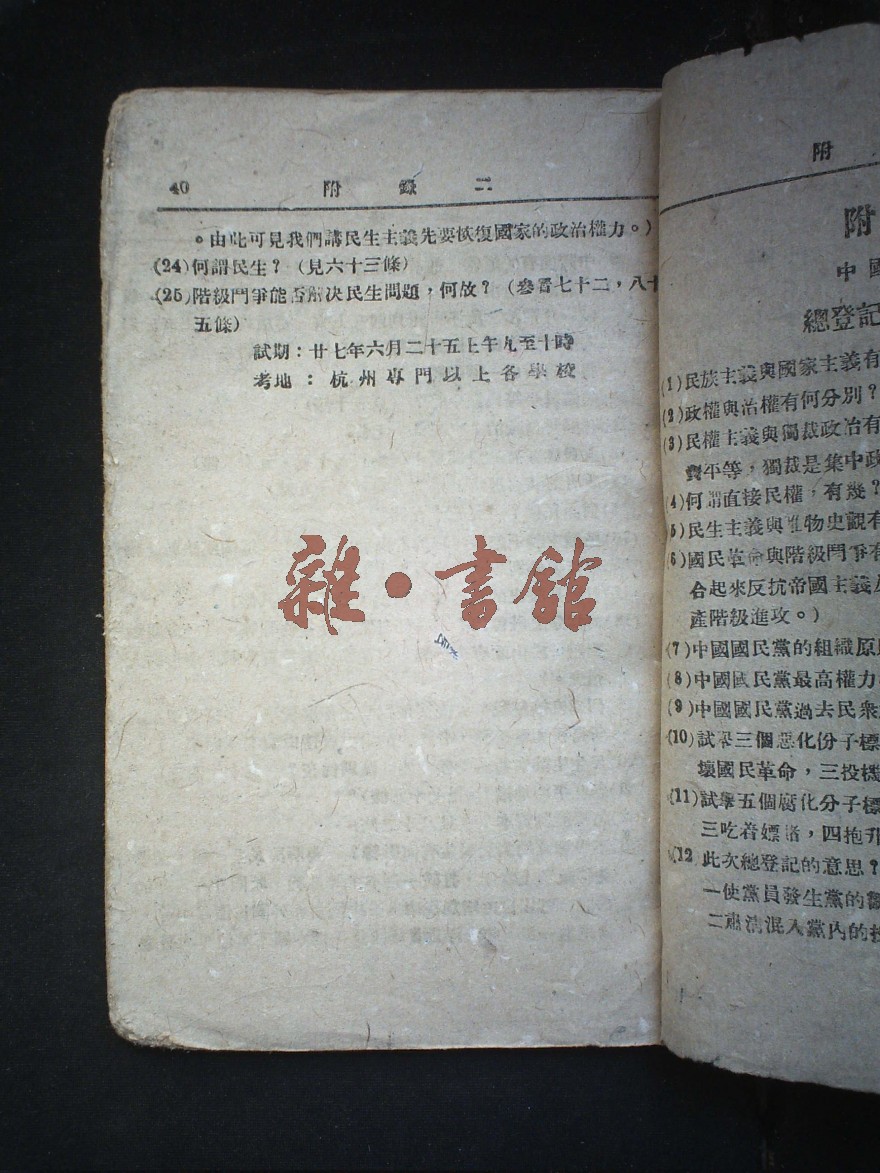 40 附錄二
。由此可見我們講民生主義先要恢復國家的政治權力。）
(24)何謂民生？（見六十三條）
(25)階級鬥爭能否解決民生問題，何故？（參看七十二，八十
五條）
試期：廿七年六月二十五上午九至十時
考地：杭州專門以上各學校
雜·書館
附
附
中國
總登記
(1)民族主義與國家主義有
(2)政權與治權有何分別？
(3)民權主義與獨裁政治有
平等，獨裁是集中政
(4)何謂直接民權，有幾？
(5)民生主義與唯物史觀有
(6)國民革命與階級鬥爭有
合起來反抗帝國主義
產階級進攻。）
(7)中國國民黨的組織原
(8)中國國民黨最高權力
(9)中國國民黨過去民衆
(10)試舉三個惡化份子標
壞國民革命，三投機
(11)試舉五個腐化分子標
三吃着嫖賭，四抱
(12 此次總登記的意思？
一使黨員發生黨的
二肅清混入黨內的